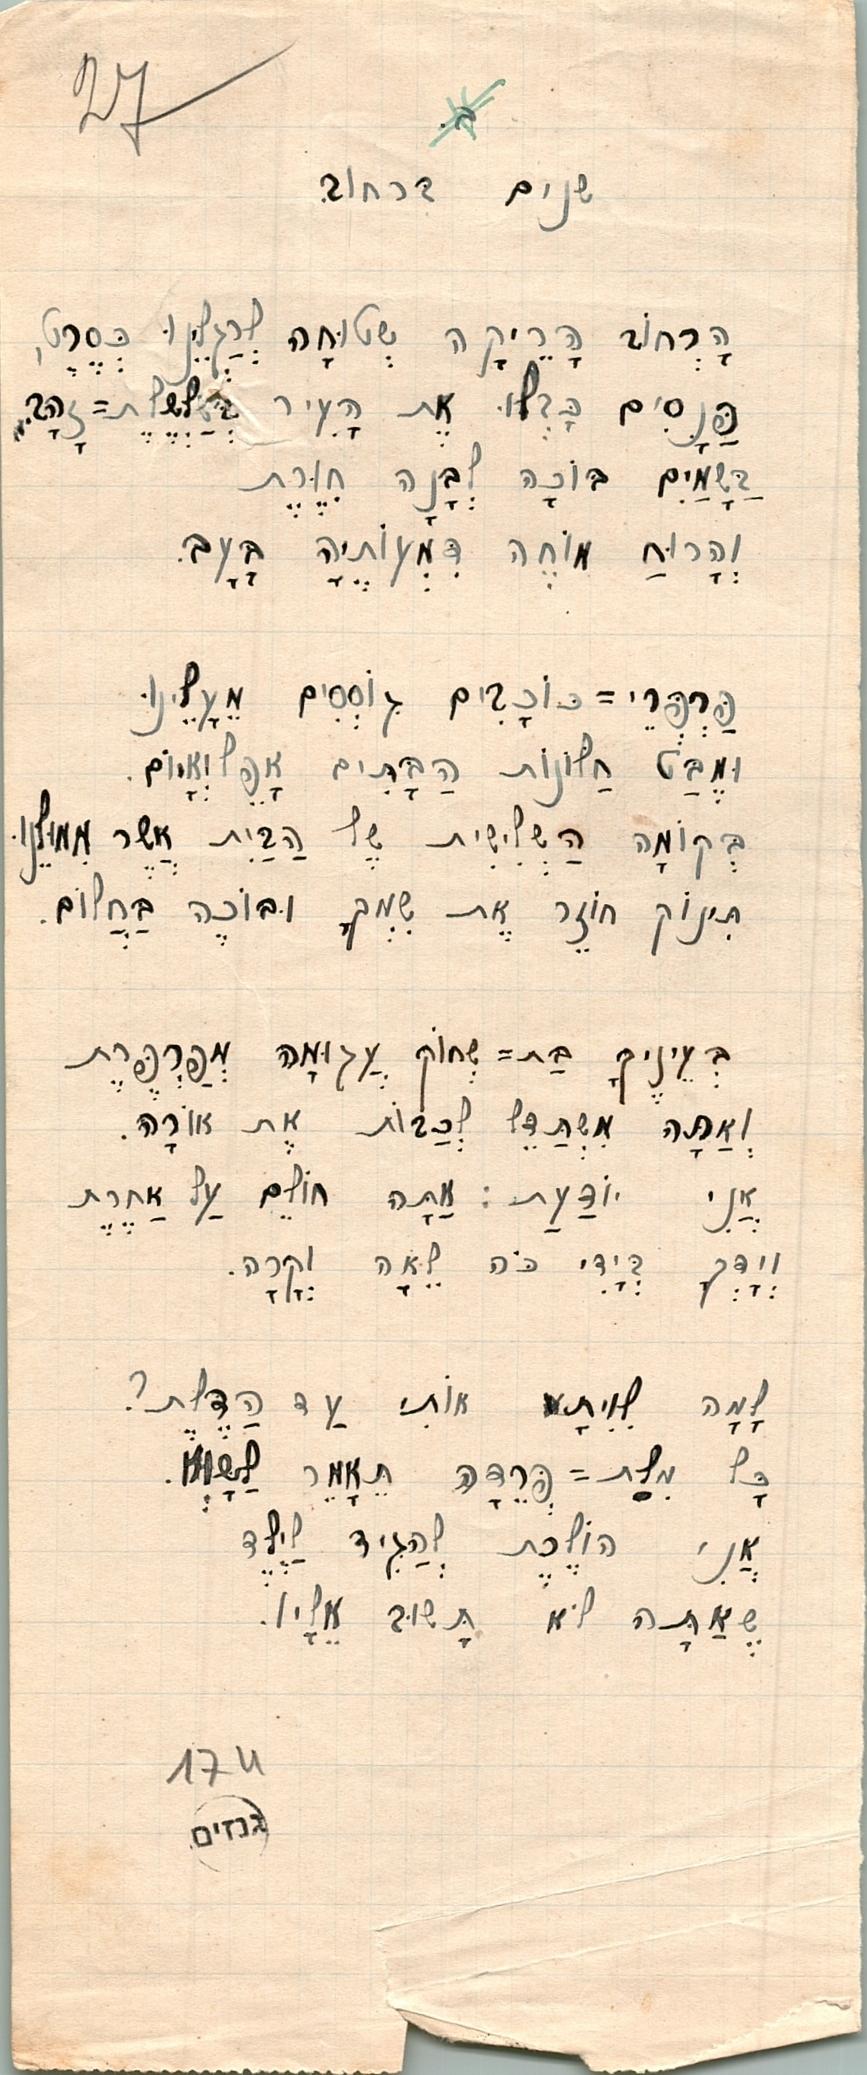 27
ב.
שנים ברחוב
הָרְחוֹב הָרֵיקָה שְׁטוּחָה לְרַגְלֵינוּ כְּסֶרֶט,
פַּנָסִים כָּבְלוּ אֶת הָעִיר בְּשַׁלְשֶׁלֶת=זָהָב.
בַּשָׁמַיִם בּוֹכָה לְבָנָה חִוֶּרֶת
וְהָרוּחַ מוֹחֶה דִמְעוֹתֶיהָ בָּעָב.
פַּרְפְּרֵי=כּוֹכָבִים גוֹסְסִים מֵעָלֵינוּ
וּמֶבַּט חַלוֹנוֹת הַבָּתִּים אָפֵל וְאָיוֹם.
בְּקוֹמָה הַשְּׁלִישִׁית שֶׁל הַבַּיִת אֲשֶׁר מִמוּלֵנוּ
תִּינוֹק חוֹזֵר אֶת שִׁמְךָ וּבוֹכֶה בַּחֲלוֹם.
בְּעֵינֶיךָ בַּת=שְׂחוֹק עֲגוּמָה מְפַרְפֶּרֶת
וְאַתָּה מִשְׁתַּדֵל לְכַבּוֹת אֶת אוֹרָהּ.
אֲנִי יוֹדַעַת: אַתָּה חוֹלֵם עַל אַחֶרֶת
וְיָדְךָ בְּיָדִי כֹּה לֵאָה וְקָרָה.
לָמָה לִוִּיתָ אוֹתִי עַד הַדֶלֶת?
כָּל מִלַת=פְּרֵדָה תֵּאָמֵר לַשָׁוְא.
אֲנִי הוֹלֶכֶת לְהַגִיד לַיֶלֶד
שֶׁאַתָּה לֹא תָּשׁוּב אֵלָיו.
174
גנזים